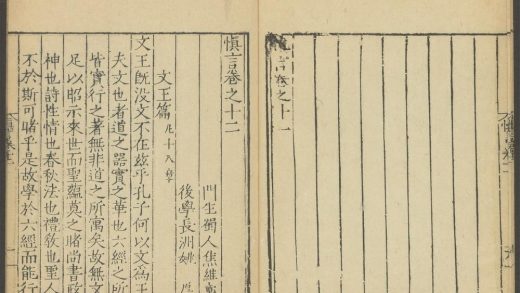 慎言卷之十一
慎言卷之十二
門生蜀人焦維
後學長洲姚
文王篇凡十八章
文王旣没文不在兹乎孔子何以文爲王
夫文也者道之器實之華也六經之所
皆實行之著無非道之所寓矣故無文
足以昭示來世而聖蘊莫之睹尚書政
神也詩性情也春秋法也禮敎也聖人
不於斯可睹乎是故學於六經而能行